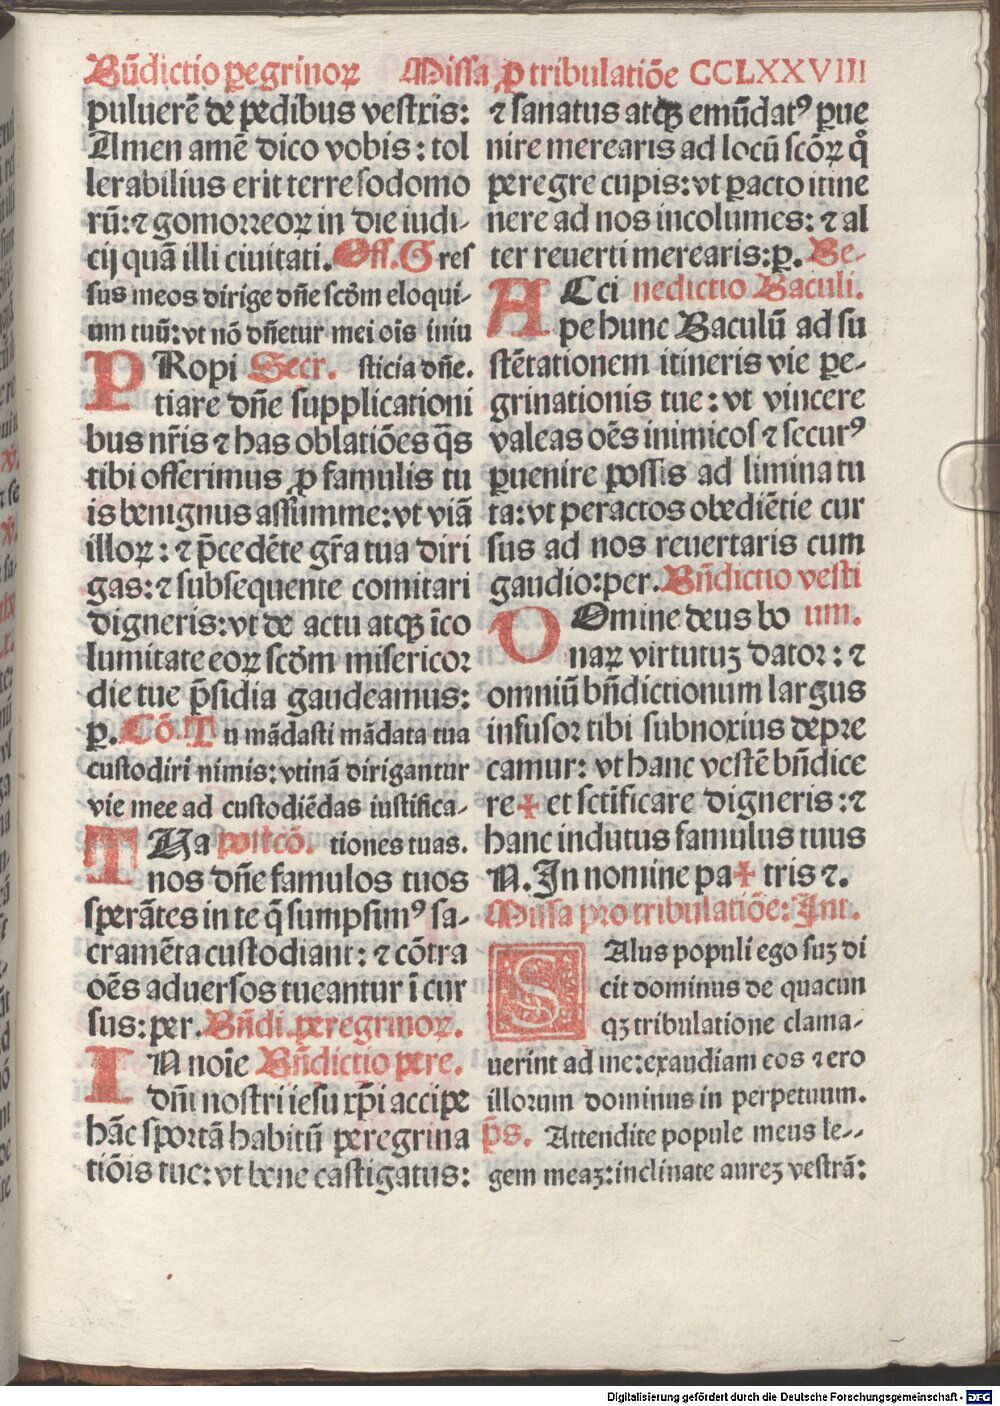 Bñdictio ꝑegrinoꝝ Missa ꝓ tribulatiõe CCLXXVIII
puluerẽ de pedibus vestris:
Amen amẽ dico vobis: tol
lerabilius erit terre sodomo
rũ: ⁊ gomorreoꝝ in die iudi-
cij quã illi ciuitati. Off. Gres
sus meos dirige dñe scd̃m eloqui-
um tuũ: vt nõ dñetur mei oĩs iniu
PRopi Secr. sticia dñe.
tiare dñe supplicationi
bus nr̃is ⁊ has oblatiões q̃s
tibi offerimus ꝓ famulis tu
is benignus assumme: vt viã
illoꝝ: ⁊ p̃cedẽte gr̃a tua diri
gas: ⁊ subsequente comitari
digneris: vt de actu atqꝫ ĩco
lumitate eoꝝ scd̃m misericoꝛ
die tue p̃sidia gaudeamus:
ꝑ. Cõ. Tu mãdasti mãdata tua
custodiri nimis: vtinã dirigantur
vie mee ad custodiẽdas iustifica-
THa postcõ. tiones tuas.
nos dñe famulos tuos
sperãtes in te q̃ sumpsimꝰ sa-
cramẽta custodiant: ⁊ cõtra
oẽs aduersos tueantur ĩ cur
sus: per. Bñdi. peregrinoꝝ.
IN noĩe Bñdictio pere.
dñi nostri iesu xp̃i accipe
hãc sportã habitũ peregrina
tiõis tue: vt bene castigatus:
⁊ sanatus atqꝫ emũdatꝰ ꝑue
nire merearis ad locũ scõꝝ q̊
peregre cupis: vt ꝑacto itine
nere ad nos incolumes: ⁊ al
ter reuerti merearis: ꝑ. Be-
ACci nedictio Baculi.
pe hunc Baculũ ad su
stẽtationem itineris vie ꝑe-
grinationis tue: vt vincere
valeas oẽs inimicos ⁊ securꝰ
ꝑuenire possis ad limina tu
ta: vt peractos obediẽtie cur
sus ad nos reuertaris cum
gaudio: per. Bñdictio vesti
DOmine deus bo um.
naꝝ virtutuꝫ datoꝛ: ⁊
omniũ bñdictionum largus
infusoꝛ tibi subnoxius depre
camur: vt hanc vestẽ bñdice
re ✠ et sctificare digneris: ⁊
hanc indutus famulus tuus
N. In nomine pa ✠ tris ⁊.
Missa pro tribulatiõe: Int.
SAlus populi ego suꝫ di
cit dominus de quacun
qꝫ tribulatione clama-
uerint ad me: exaudiam eos ⁊ ero
illorum dominus in perpetuum.
p̃s. Attendite popule meus le-
gem meaꝫ: inclinate aureꝫ vestrã:
Digitalisierung gefördert durch die Deutsche Forschungsgemeinschaft - DFG